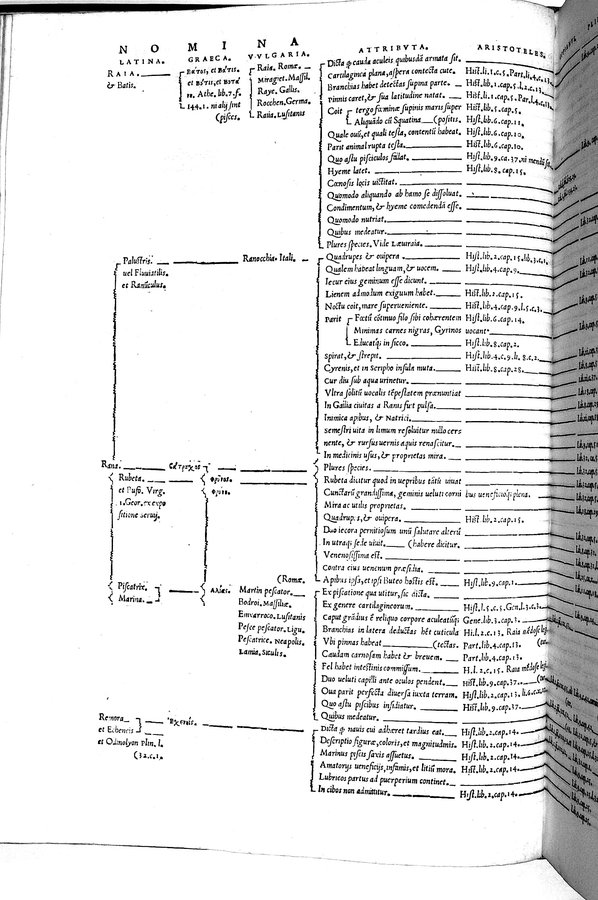 NOMINA
LATINA. GRAECA. VVLGARIA. ATTRIBVTA. ARISTOTELES.
RAIA. Raia. Romæ. Dicta ꝗ cauda aculeis quibusdā armata sit.
& Batis. Miraget. Massil. Cartilaginea plana, aspera contecta cute. Hist.li.1.c.5. Part.li.4.c.13.
Raye. Gallis. Branchias habet detectas supina parte. Hist.lib.1.cap.5.l.2.c.13.
18. Athe. lib.7.f. Rocchen. Germa. Pinnis caret, & sua latitudine natat. Hist.li.1.cap.5. Par.l.4.c.13.
144.1. Raia. Lusitanis Coit tergo fœminæ supinis maris super Hist.lib.5.cap.5.
(pisces. Aliquādo cū Squatina (positis. Hist.lib.6.cap.11.
Quale ouū, et quali testa, contentū habeat. Hist.lib.6.cap.10.
Parit animal rupta testa. Hist.lib.6.cap.10.
Quo astu pisciculos fallat. Hist.lib.9.ca.37.
Hyeme latet. Hist.lib.8.cap.15.
Cœnosis locis uictitat.
Quomodo aliquando ab hamo se dissoluat.
Condimentum, & hyeme comedendā esse.
Quomodo nutriat.
Quibus medeatur.
Plures species. Vide Læuiraia.
Palustris. Ranocchia. Itali. Quadrupes & ouipera. Hist.lib.2.cap.15.lib.3.c.1.
uel Fluuiatilis. Qualem habeat linguam, & uocem. Hist.lib.4.cap.9.
et Ranūculus. Iecur eius geminum esse dicunt.
Lienem admodum exiguum habet. Hist.lib.2.cap.15.
Noctu coit, mare superueniente. Hist.lib.4.cap.9.l.5.c.3.
Parit Fœtū cōtinuo filo sibi cohærentem Hist.lib.6.cap.14.
Minimas carnes nigras, Gyrinos uocant.
Educatꝗ in sicco. Hist.lib.8.cap.2.
Spirat, & strepit. Hist.lib.4.c.9.li.8.c.2.
Cyrenis, et in Seripho insula muta. Hist.lib.8.cap.28.
Cur diu sub aqua urinetur.
Vltra solitū uocalis tēpestatem prænuntiat
In Gallia ciuitas a Ranis fuit pulsa.
Inimica apibus, & Natrici.
Semestri uita in limum resoluitur nullo cer
nente, & rursus uernis aquis renascitur.
In medicinis usus, & proprietas mira.
Rana. βάτραχος Plures species.
Rubeta. φρῦνος. Rubeta dicitur quod in uepribus tātū uiuat
et Bufo. Virg. φρύνη. Cunctarū grandissima, geminis ueluti corni bus ueneficiisꝗ plena.
1.Geor.ex expo Mira ac utilis proprietas.
sitione Seruij. Quadrup.s, & ouipera. Hist.lib.2.cap.15.
Duo iecora pernitiosum unū salutare alterū
In utraꝗ sede uiuit. (habere dicitur.
Venenosissima est.
Contra eius uenenum præsidia.
(Romæ. Apibus ipsa, et ipsi Buteo hostis est. Hist.lib.9.cap.1.
Piscatrix. Martin pescator. Ex piscatione qua utitur, sic dicta.
Marina. Bodroi. Massiliæ. Ex genere cartilagineorum. Hist.l.5.c.5. Gen.l.3.c.3.
Emxarroco. Lusitanis Caput grādius ē reliquo corpore aculeatūꝗ Gene.lib.3.cap.3.
Pesce pescator. Ligu. Branchias in latera deductas hēt cuticula Hi.l.2.c.13. Raia mēdose leg
Pescatrice. Neapolis. Vbi pinnas habeat (tectas. Part.lib.4.cap.13.
Lamia. Siculis. Caudam carnosam habet & breuem. Part.lib.4.cap.13.
Fel habet intestinis commissum. H.l.2.c.15. Raia mēdose leg
Duo ueluti capilli ante oculos pendent. Hist.lib.9.cap.37.
Oua parit perfecta diuersa iuxta terram. Hist.lib.2.cap.13.l.6.c.
Quo astu piscibus insidiatur. Hist.lib.9.cap.37.
Quibus medeatur.
Remora Dicta ꝗ naui cui adhæret tardius eat. Hist.lib.2.cap.14.
et Echeneis Descriptio figuræ, coloris, et magnitudinis. Hist.lib.2.cap.14.
et Odinolyon Plin.l. Marinus piscis saxis assuetus. Hist.lib.2.cap.14.
(32.c.1. Amatorijs ueneficijs, infamis, et litiū mora. Hist.lib.2.cap.14.
Lubricos partus ad puerperium continet.
In cibos non admittitur. Hist.lib.2.cap.14.